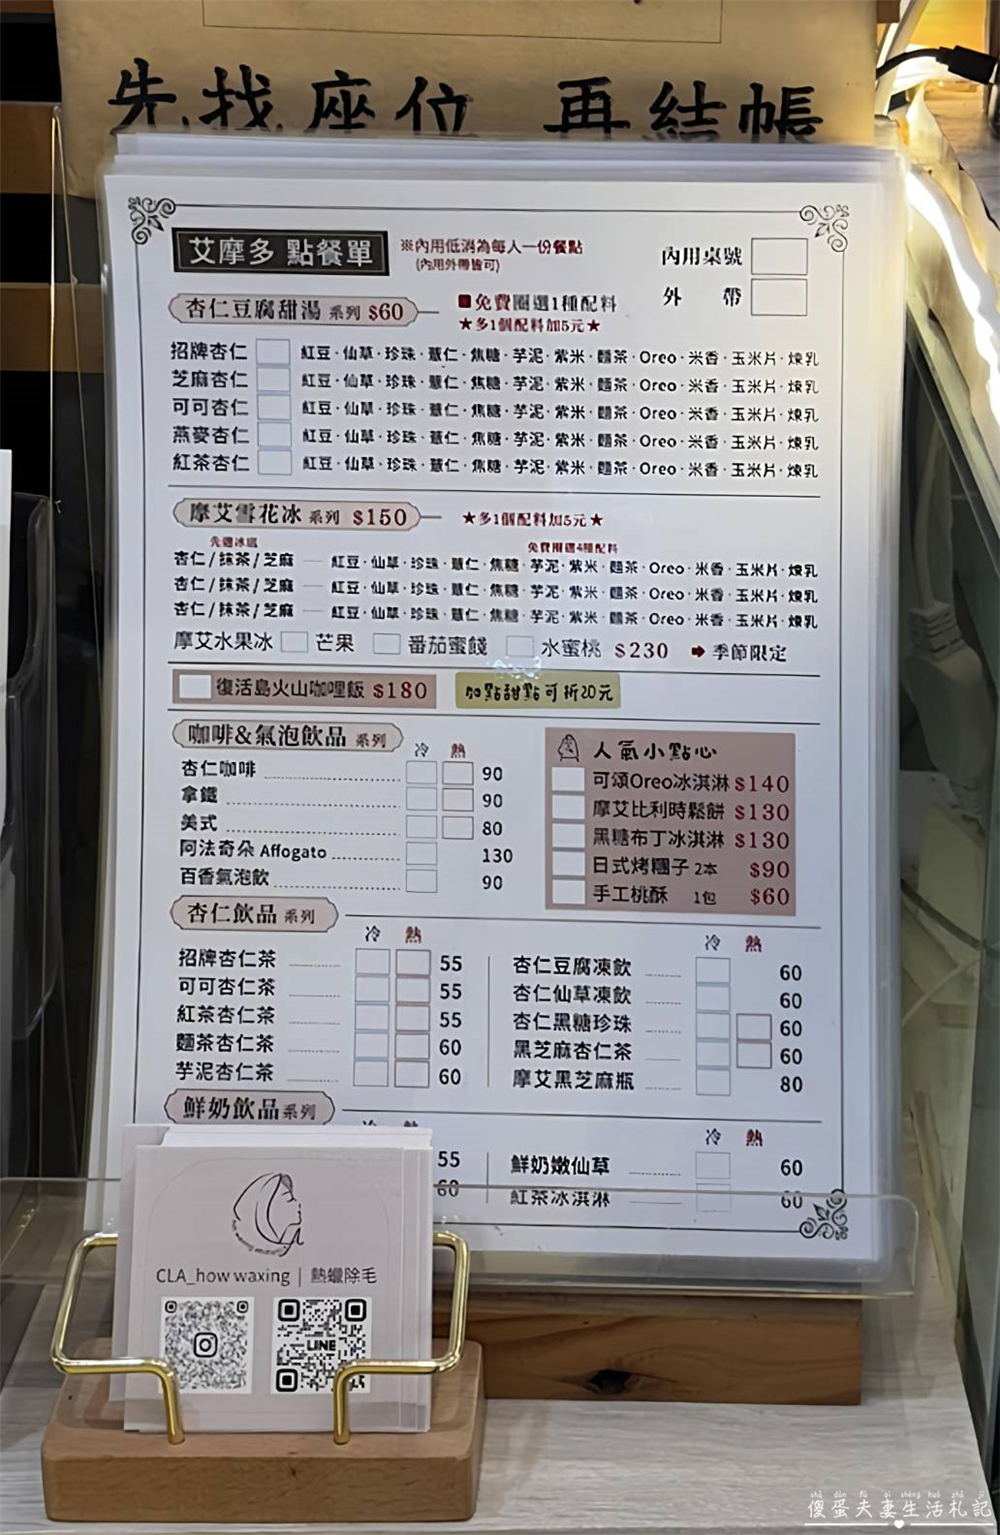 先找座位 再結帳
艾摩多 點餐單
※內用低消為每人一份餐點
(內用外帶皆可)
內用桌號
外 帶
杏仁豆腐甜湯 系列 $60
免費圈選1種配料
★多1個配料加5元★
招牌杏仁 紅豆·仙草·珍珠·薏仁·焦糖·芋泥·紫米·麵茶·Oreo·米香·玉米片·煉乳
芝麻杏仁 紅豆·仙草·珍珠·薏仁·焦糖·芋泥·紫米·麵茶·Oreo·米香·玉米片·煉乳
可可杏仁 紅豆·仙草·珍珠·薏仁·焦糖·芋泥·紫米·麵茶·Oreo·米香·玉米片·煉乳
燕麥杏仁 紅豆·仙草·珍珠·薏仁·焦糖·芋泥·紫米·麵茶·Oreo·米香·玉米片·煉乳
紅茶杏仁 紅豆·仙草·珍珠·薏仁·焦糖·芋泥·紫米·麵茶·Oreo·米香·玉米片·煉乳
摩艾雪花冰 系列 $150 ★多1個配料加5元★
先選冰底 免費圈選4種配料
杏仁/抹茶/芝麻 — 紅豆·仙草·珍珠·薏仁·焦糖·芋泥·紫米·麵茶·Oreo·米香·玉米片·煉乳
杏仁/抹茶/芝麻 — 紅豆·仙草·珍珠·薏仁·焦糖·芋泥·紫米·麵茶·Oreo·米香·玉米片·煉乳
杏仁/抹茶/芝麻 — 紅豆·仙草·珍珠·薏仁·焦糖·芋泥·紫米·麵茶·Oreo·米香·玉米片·煉乳
摩艾水果冰 芒果 番茄蜜餞 水蜜桃 $230 ➡季節限定
復活島火山咖哩飯 $180 加點甜點可折20元
咖啡&氣泡飲品 系列 冷 熱
杏仁咖啡 90
拿鐵 90
美式 80
阿法奇朵 Affogato 130
百香氣泡飲 90
人氣小點心
可頌Oreo冰淇淋 $140
摩艾比利時鬆餅 $130
黑糖布丁冰淇淋 $130
日式烤糰子 2本 $90
手工桃酥 1包 $60
杏仁飲品 系列
冷 熱
招牌杏仁茶 55
可可杏仁茶 55
紅茶杏仁茶 55
麵茶杏仁茶 60
芋泥杏仁茶 60
冷 熱
杏仁豆腐凍飲 60
杏仁仙草凍飲 60
杏仁黑糖珍珠 60
黑芝麻杏仁茶 60
摩艾黑芝麻瓶 80
鮮奶飲品 系列
冷 熱
55
60
冷 熱
鮮奶嫩仙草 60
紅茶冰淇淋 60
CLA_how waxing｜熱蠟除毛
LINE
shǎ dàn fū qī shēng huó zhá jì
傻蛋夫妻生活札記